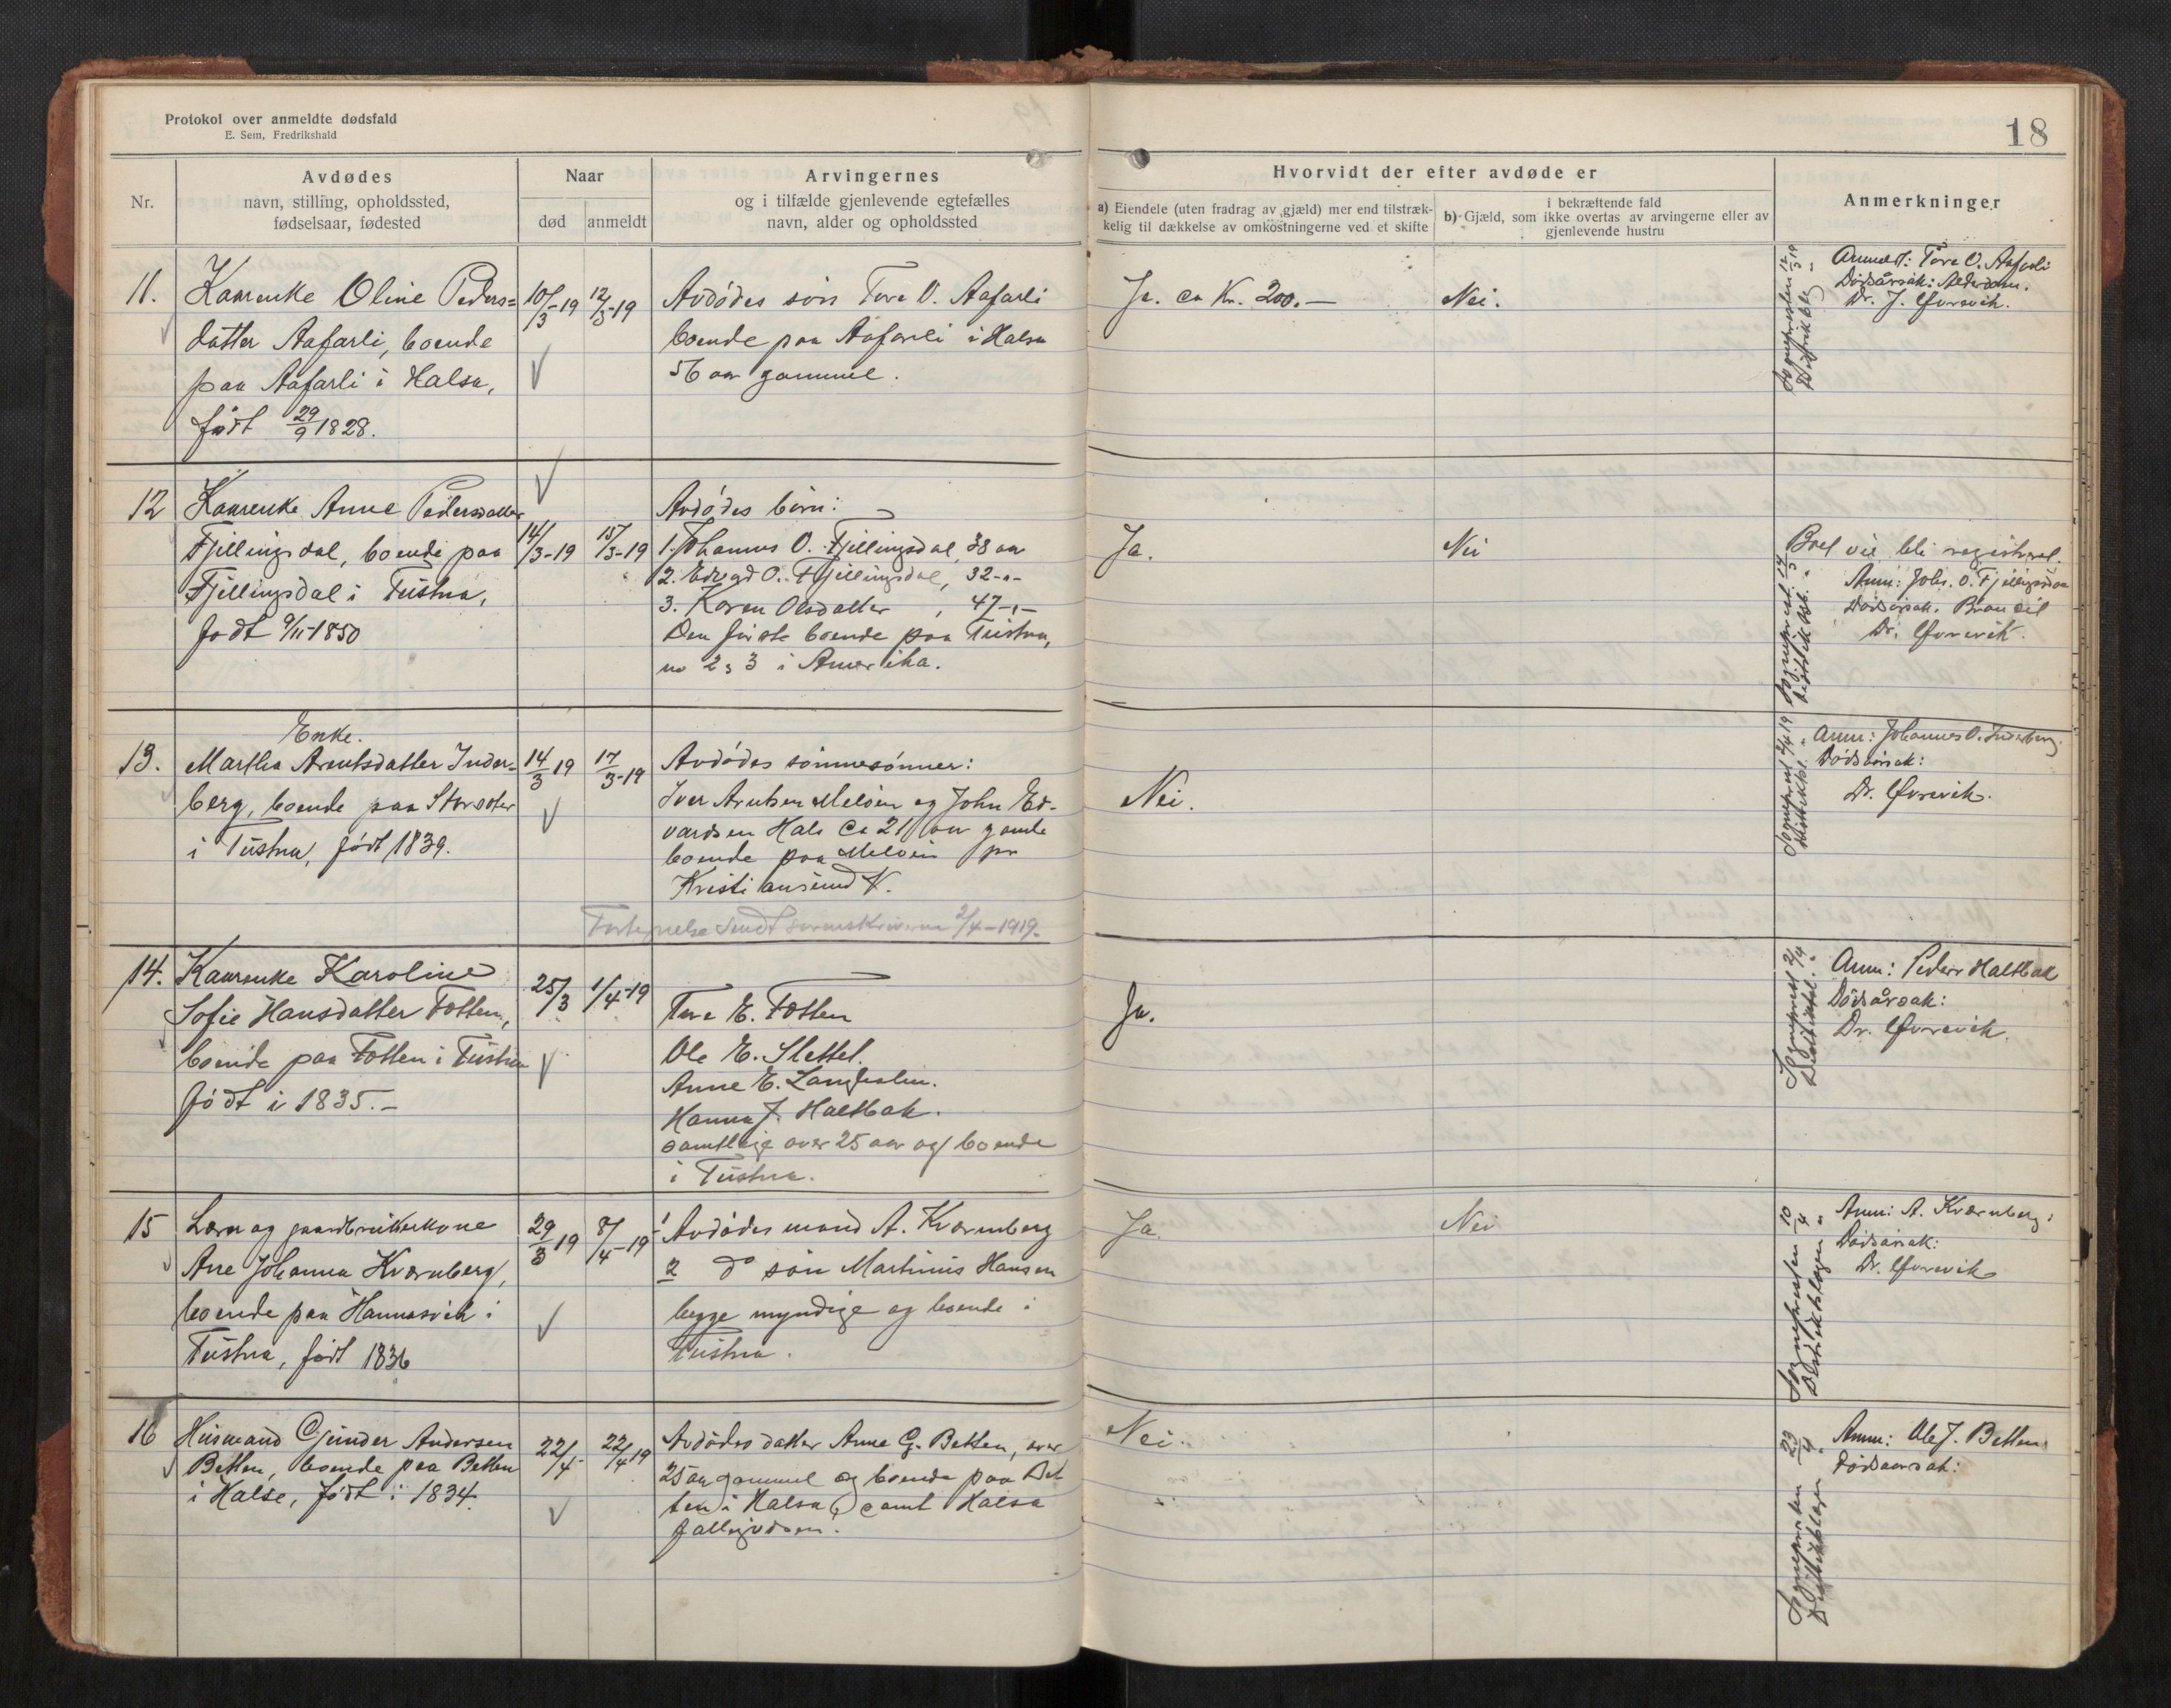 Protokol over anmeldte dødsfald
E. Sem, Fredrikshald
18
Nr.
Avdødes
navn, stilling, opholdssted,
fødselsaar, fødested
Naar
død
anmeldt
Arvingernes
og i tilfælde gjenlevende egtefælles
navn, alder og opholdssted
Hvorvidt der efter avdøde er
a) Eiendele (uten fradrag av gjæld) mer end tilstræk-
kelig til dækkelse av omkostningerne ved et skifte
i bekræftende fald
b) Gjæld, som ikke overtas av arvingerne eller av
gjenlevende hustru
Anmerkninger
11.
Kaarenke Oline Peders=
datter Aafarli, boende
paa Aafarli i Halsa,
født 29/9 1828.
10/3-19
12/3-19
Avdødes søn Tore O. Aafarli
boende paa Aafarli i Halsa
56 aar gammel.
Ja. ca Kr. 200.—
Nei.
Sognepresten 12/3 19
Distriktslg "
Anmeldt: Tore O. Aafarli
Dødsårsak: Alderdom.
Dr. J. Øvrevik.
12
Kaarenke Anne Pedersdatter
Fjellingsdal, boende paa
Fjellingsdal i Tustna,
født 9/11-1850
14/3-19
15/3-19
Avdødes børn:
1. Johannes O. Fjellingsdal, 38 aar
2. Edvard O. Fjellingsdal, 32-"-
3. Karen Olsdatter, 47-"-
Den første boende paa Tustna,
no 2 & 3 i Amerika.
Ja.
Nei
Boet vil bli registrert.
Anm: Johs. O. Fjellingsdal
Dødsårsak.
Dr. Øvrevik.
13.
Enke.
Martha Arentsdatter Inder-
berg, boende paa Storoter
i Tustna, født 1839.
14/3 19
17/3-19
Avdødes sønnesønner:
Iver Arntsen Meløen og John Ed-
vardsen Hals ca 21 aar gamle
boende paa Meløen pr
Kristiansund N.
Fortegnelse sendt sorenskriveren 2/4-1919.
Nei.
Sogneprest 2/4 19
Distriktsl. "
Anm: Johannes O. Inderberg.
Dødsårsak:
Dr. Øvrevik.
14.
Kaarenke Karoline
Sofie Hansdatter Fotten,
boende paa Fotten i Tustna
født i 1835.-
25/3
1/4-19
Tore E. Fotten
Ole E. Slettel.
Anne E. Langholm.
Hanna J. Haltbak.
samtlige over 25 aar og boende
i Tustna.
Ja.
Sogneprest 2/4
Distriktsl. "
Anm: Peder Haltbak
Dødsårsak:
Dr. Øvrevik.
15
Lærer og gaardbrukerkone
Ane Johanna Kvernberg,
boende paa Hannasvik i
Tustna, født 1836
29/3 19
8/4-19
1 Avdødes mand A. Kvernberg
2 do søn Martinus Hansen
begge myndige og boende i
Tustna.
Ja.
Nei
Sognepresten 10/4
Distriktslægen "
Anm: A. Kvernberg.
Dødsårsak:
Dr. Øvrevik
16
Husmand Gunder Andersen
Betten, boende paa Betten
i Halse, født i 1834.
22/4
22/4 19
Avdødes datter Anne G. Betten, over
25 aar gammel og boende paa Bet
ten i Halsa, samt Halsa
fattigvæsen.
Nei.
Sognepresten 23/4
Distriktslægen "
Anm: Ole J. Betten
Dødsaarsak: